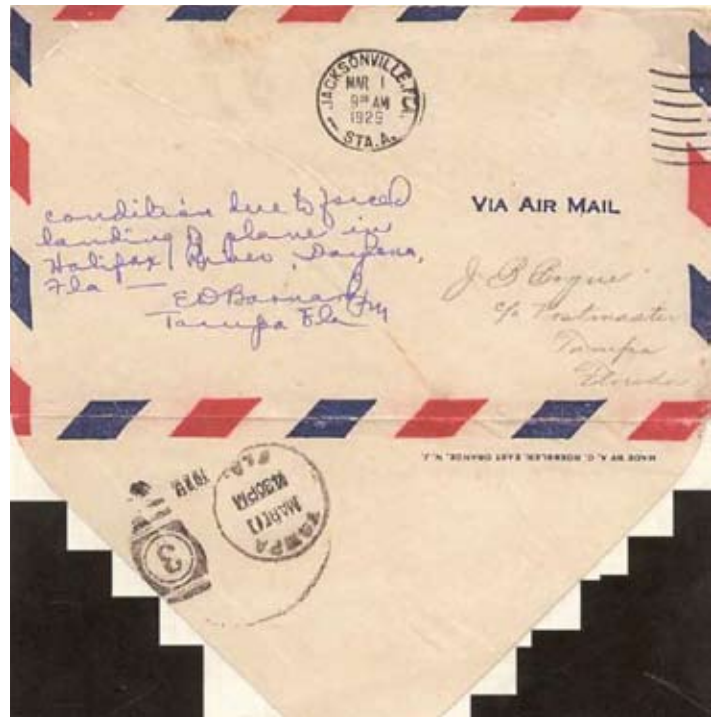 JACKSONVILLE, FLA.
MAR 1
9 AM
1929
STA. A.
condition due to forced
landing of plane in
Halifax River, Daytona,
Fla —
E D Barnard PM
Tampa Fla
VIA AIR MAIL
J
c/o Postmaster
Tampa
Florida
MADE BY A. C. ROESSLER, EAST ORANGE, N. J.
TAMPA
MAR 1
30 PM
FLA.
1929
3